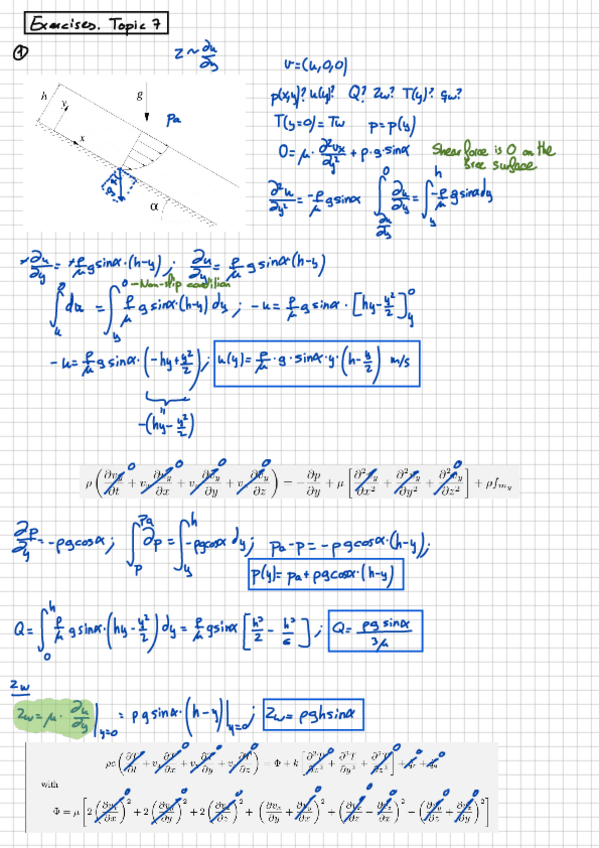 Exercises. Topic 7
①
τ ~ ∂u/∂y
v=(u,0,0)
p(x,y)? u(y)? Q? τw? T(y)? qw?
T(y=0)=Tw p=p(y)
h y x g Pa α
0=μ·∂²vx/∂y²+ρ·g·sinα
Shear force is 0 on the free surface
∂²u/∂y²=-ρ/μ gsinα ∫_{∂u/∂y}^{0} ∂u/∂y=∫_y^h -ρ/μ gsinα dy
-∂u/∂y=-ρ/μ gsinα·(h-y); ∂u/∂y=ρ/μ gsinα(h-y)
0-Non-slip condition
∫_u^0 du=∫_y^0 ρ/μ gsinα·(h-y)dy; -u=ρ/μ gsinα·[hy-y²/2]_y^0
-u=ρ/μ gsinα·(-hy+y²/2); u(y)=ρ/μ·g·sinα·y·(h-y/2) m/s
-(hy-y²/2)
ρ(∂vy/∂t+vx ∂vy/∂x+vy ∂vy/∂y+vz ∂vy/∂z)=-∂p/∂y+μ[∂²vy/∂x²+∂²vy/∂y²+∂²vy/∂z²]+ρfmy
∂p/∂y=-ρgcosα; ∫_p^{Pa} ∂p=∫_y^h -ρgcosα dy; pa-p=-ρgcosα·(h-y);
p(y)=pa+ρgcosα·(h-y)
Q=∫_0^h ρ/μ gsinα·(hy-y²/2)dy=ρ/μ gsinα[h³/2-h³/6]; Q=ρg sinα/3μ
τw
τw=μ·∂u/∂y|y=0=ρgsinα·(h-y)|y=0; τw=ρghsinα
ρc(∂T/∂t+vx ∂T/∂x+vy ∂T/∂y+vz ∂T/∂z)=Φ+k[∂²T/∂x²+∂²T/∂y²+∂²T/∂z²]
with
Φ=μ[2(∂vx/∂x)²+2(∂vy/∂y)²+2(∂vz/∂z)²+(∂vx/∂y+∂vy/∂x)²